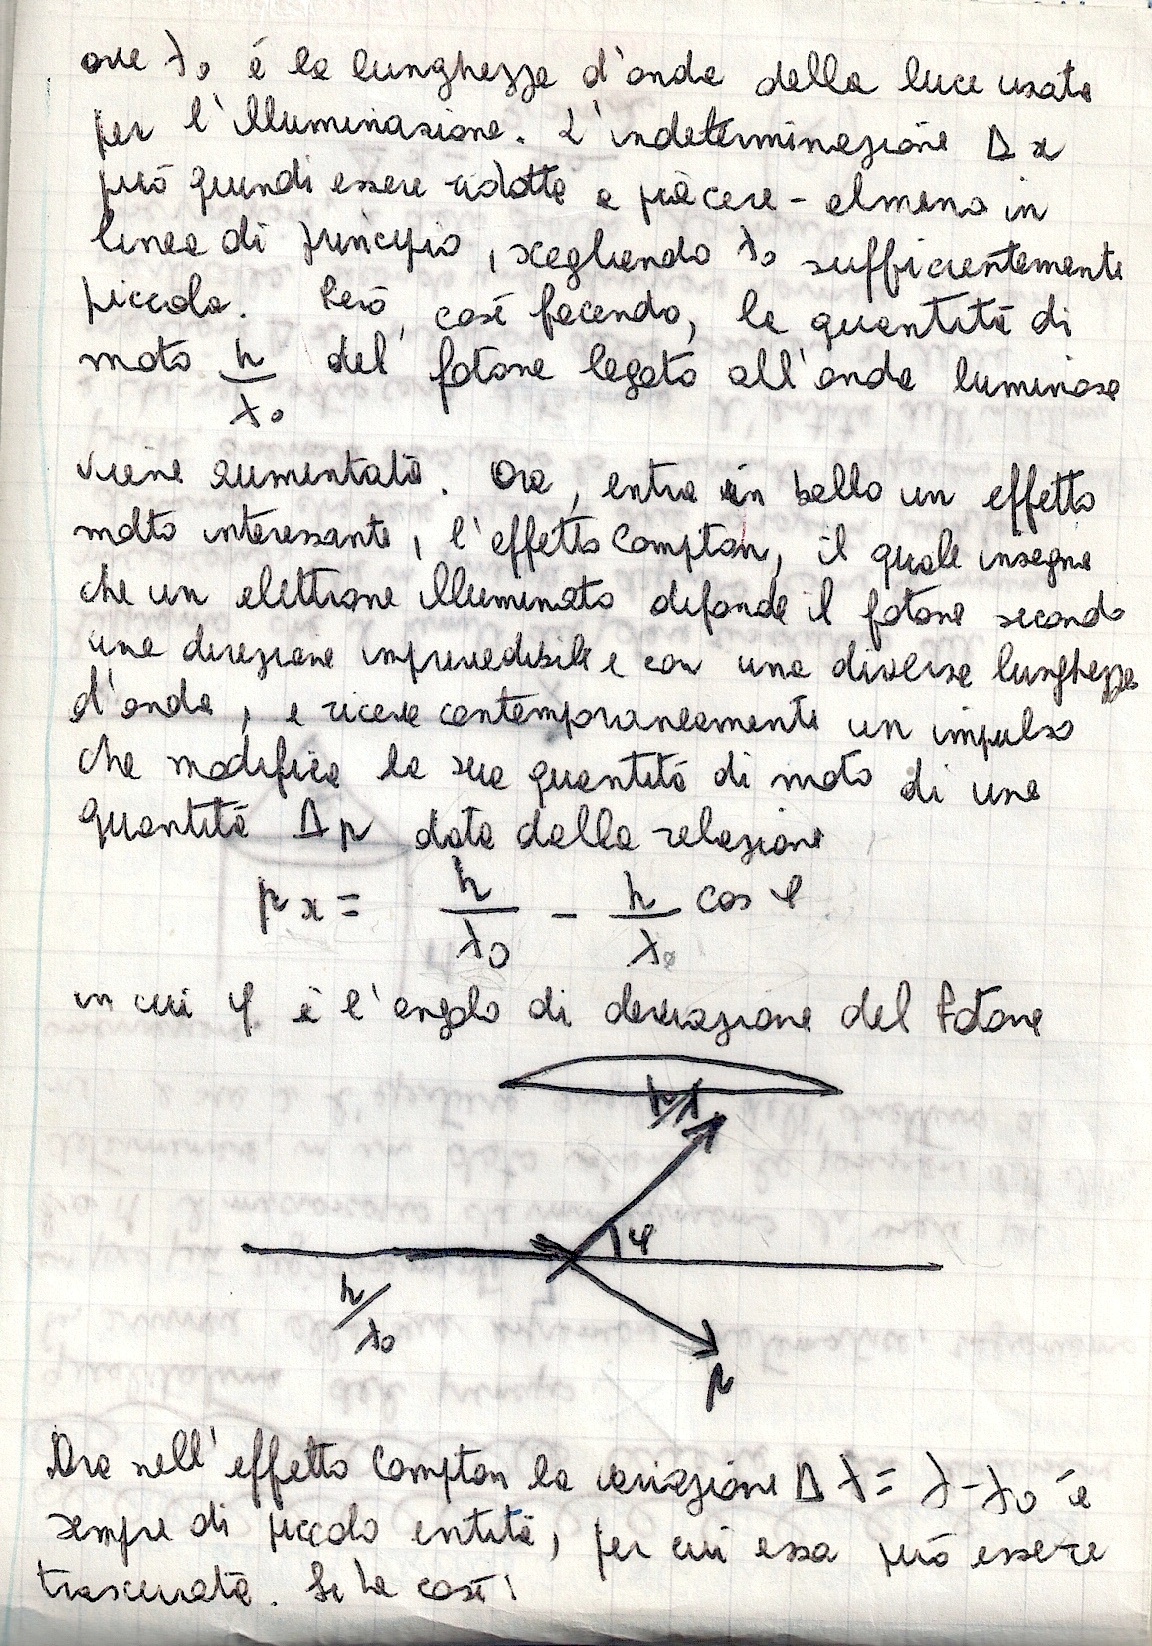 ove λ₀ é la lunghezza d'onda della luce usata
per l'illuminazione. L'indeterminazione Δx
può quindi essere ridotta a piacere - almeno in
linea di principio, scegliendo λ₀ sufficientemente
piccola. Però, così facendo, la quantità di
moto h/λ₀ del fotone legato all'onda luminosa
viene aumentata. Ora, entra in ballo un effetto
molto interessante, l'effetto Compton, il quale insegna
che un elettrone illuminato difonde il fotone secondo
una direzione imprevedibile e con una diversa lunghezza
d'onda, e riceve contemporaneamente un impulso
che modifica la sua quantità di moto di una
quantità Δp data dalla relazione
px = h/λ₀ - h/λ₀ cos φ
in cui φ è l'angolo di deviazione del fotone
h/λ
φ
h/λ₀
p
Ora nell'effetto Compton la variazione Δλ = λ-λ₀ è
sempre di piccola entità, per cui essa può essere
trascurata. Si ha così: